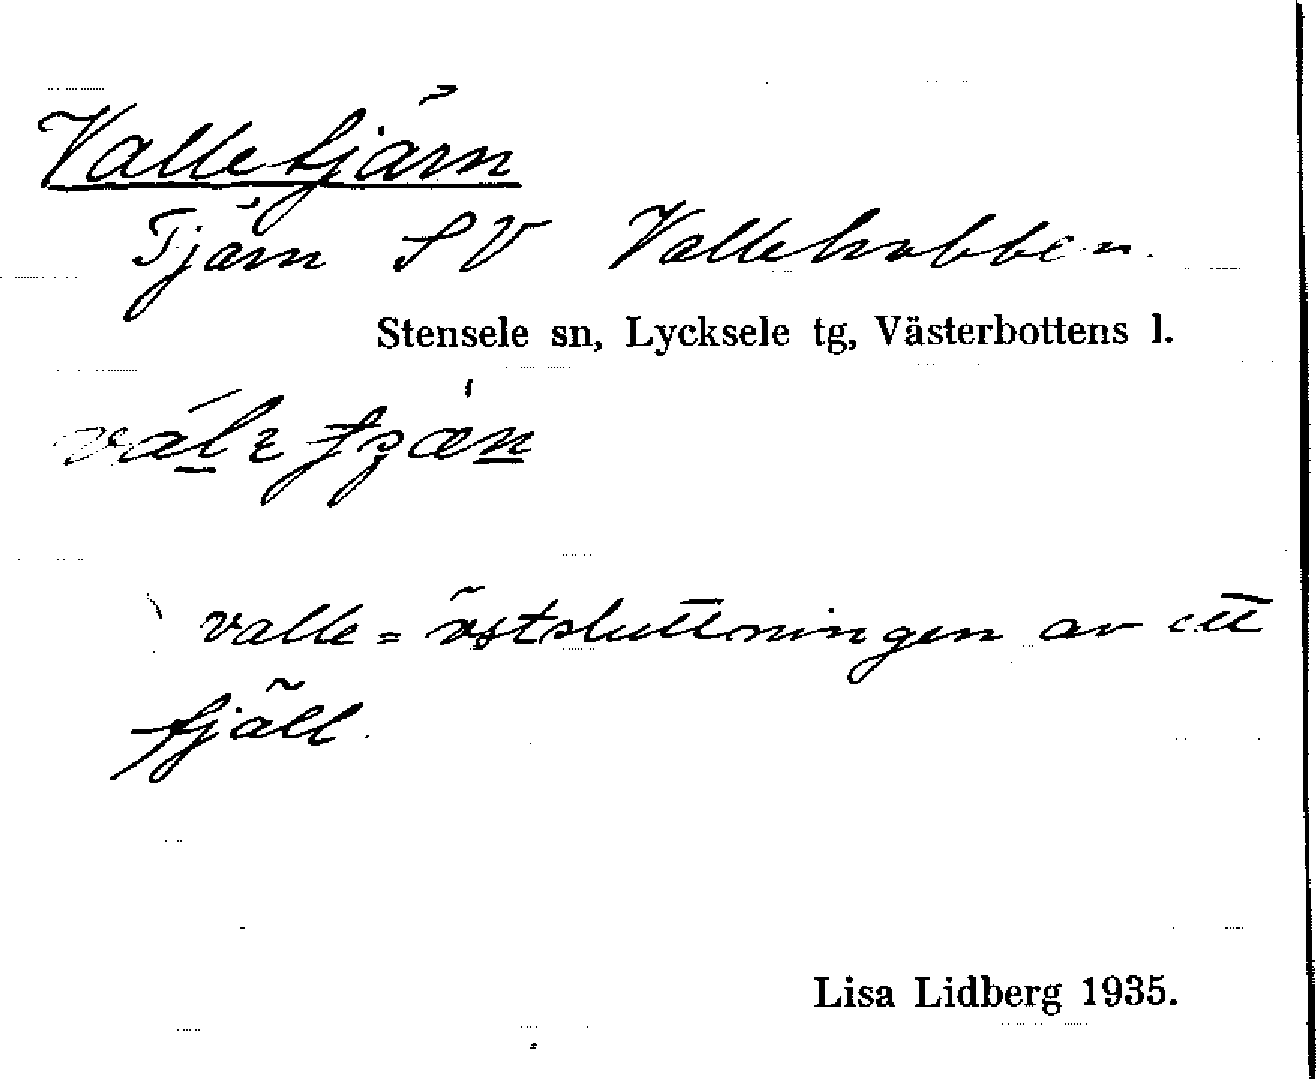 Valletjärn
Tjärn SV Valleknabben.
Stensele sn, Lycksele tg, Västerbottens l.
valle = östsluttningen av ett
fjäll.
Lisa Lidberg 1935.